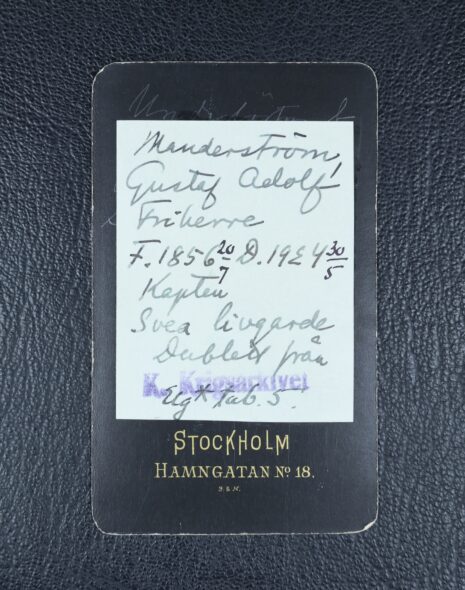 Manderström,
Gustaf Adolf
Friherre
F. 1856 20/7 D. 1924 30/5
Kapten
Svea livgarde
Dublett från
K. Krigsarkivet
Elg^x tab. 5.
STOCKHOLM
HAMNGATAN No 18.